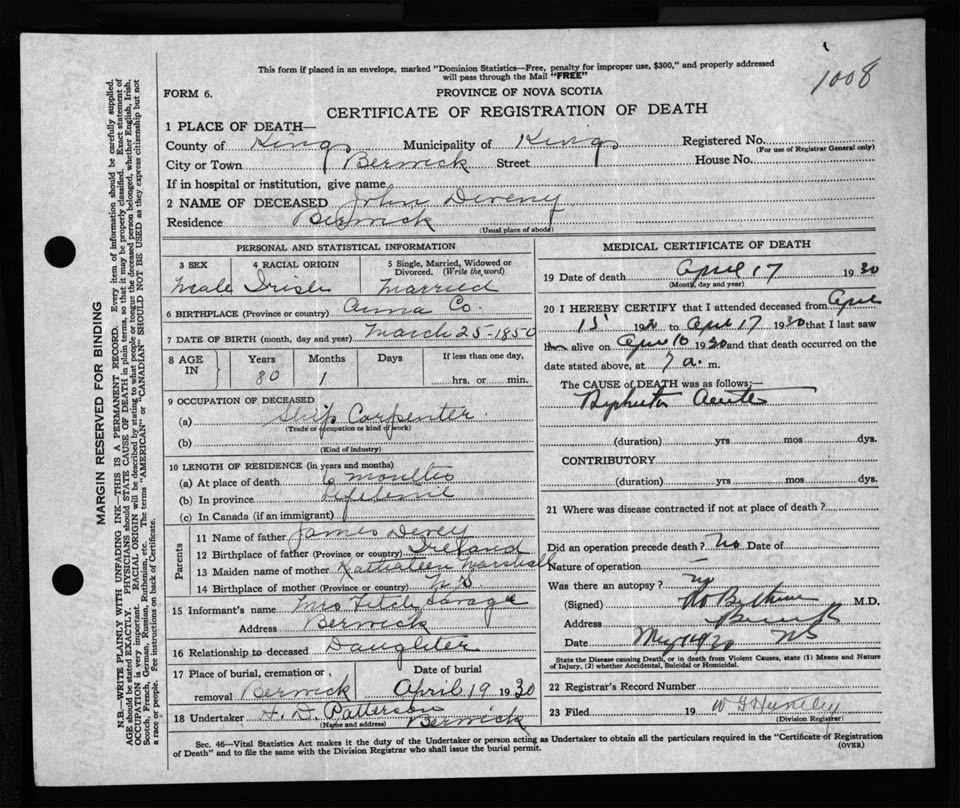 1008
This form if placed in an envelope, marked "Dominion Statistics—Free, penalty for improper use, $300," and properly addressed
will pass through the Mail "FREE"
FORM 6.
PROVINCE OF NOVA SCOTIA
CERTIFICATE OF REGISTRATION OF DEATH
1 PLACE OF DEATH—
County of Kings Municipality of Kings Registered No.
(For use of Registrar General only)
City or Town Berwick Street House No.
If in hospital or institution, give name
2 NAME OF DECEASED John Deveny
Residence Berwick
(Usual place of abode)
PERSONAL AND STATISTICAL INFORMATION
3 SEX 4 RACIAL ORIGIN 5 Single, Married, Widowed or
Divorced. (Write the word)
Male Irish Married
6 BIRTHPLACE (Province or country) Anna Co.
7 DATE OF BIRTH (month, day and year) March 25-1850
8 AGE IN Years Months Days If less than one day,
80 1 hrs. or min.
9 OCCUPATION OF DECEASED
(a) Ship Carpenter
(Trade or occupation or kind of work)
(b)
(Kind of industry)
10 LENGTH OF RESIDENCE (in years and months)
(a) At place of death 6 months
(b) In province Lifetime
(c) In Canada (if an immigrant)
Parents
11 Name of father James Devey
12 Birthplace of father (Province or country) Ireland
13 Maiden name of mother Kathaleen Marshall
14 Birthplace of mother (Province or country) N S
15 Informant's name Mrs Fitch Savage
Address Berwick
16 Relationship to deceased Daughter
17 Place of burial, cremation or Date of burial
removal Berwick April 19 1930
18 Undertaker F. D. Patterson
(Name and address) Berwick
MEDICAL CERTIFICATE OF DEATH
19 Date of death April 17 1930
(Month, day and year)
20 I HEREBY CERTIFY that I attended deceased from April
15 19 to April 17 1930 that I last saw
him alive on April 16 1930 and that death occurred on
date stated above, at 7 a. m.
The CAUSE of DEATH was as follows:—
Acute
(duration) yrs mos dys.
CONTRIBUTORY
(duration) yrs mos dys.
21 Where was disease contracted if not at place of death?
Did an operation precede death? No Date of
Nature of operation —
Was there an autopsy? no
(Signed) M.D.
Address Berwick
Date NS
State the Disease causing Death, or in death from Violent Causes, state (1) Means and Nature
of Injury, (2) whether Accidental, Suicidal or Homicidal.
22 Registrar's Record Number
23 Filed 19
(Division Registrar)
Sec. 46—Vital Statistics Act makes it the duty of the Undertaker or person acting as Undertaker to obtain all the particulars required in the "Certificate of Registration
of Death" and to file the same with the Division Registrar who shall issue the burial permit.
(OVER)
MARGIN RESERVED FOR BINDING
N.B.—WRITE PLAINLY WITH UNFADING INK—THIS IS A PERMANENT RECORD. Every item of information should be carefully supplied.
AGE should be stated EXACTLY. PHYSICIANS should STATE CAUSE OF DEATH in plain terms, so that it may be properly classified. Exact statement of
OCCUPATION is very important. RACIAL ORIGIN will be described by stating to what people or tongue the deceased person belonged, whether English, Irish,
Scotch, French, German, Russian, Ruthenian, etc. The terms "AMERICAN" or "CANADIAN" SHOULD NOT BE USED as they express citizenship but not
a race or people. See instructions on back of Certificate.